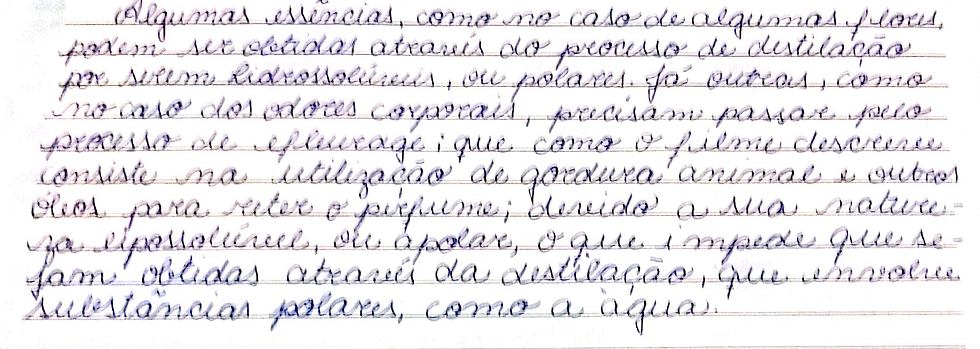 Algumas essências, como no caso de algumas flores,
podem ser obtidas através do processo de destilação
por serem hidrossolúveis, ou polares. Já outras, como
no caso dos odores corporais, precisam passar pelo
processo de efleurage; que como o filme descreve
consiste na utilização de gordura animal e outros
óleos para reter o perfume; devido a sua nature-
za lipossolúvel, ou apolar, o que impede que se-
jam obtidas através da destilação, que envolve
substâncias polares, como a água.